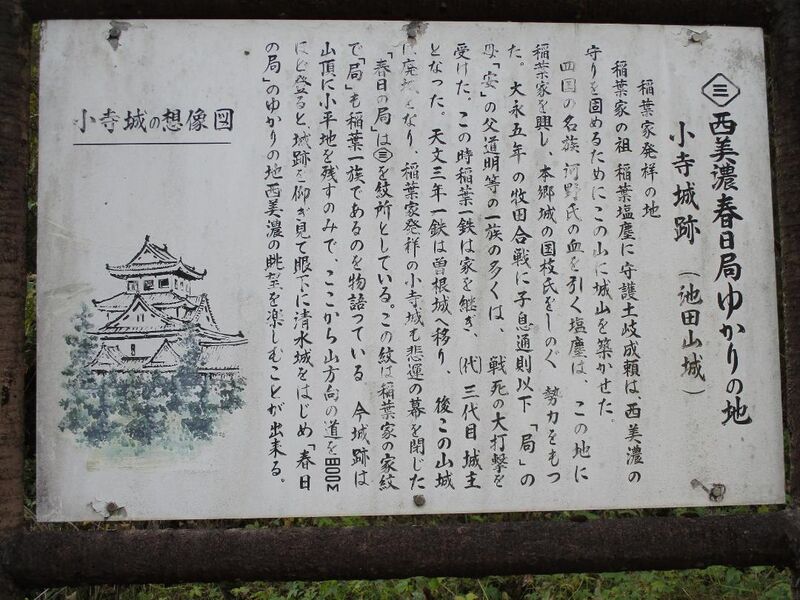 ㊂ 西美濃春日局ゆかりの地
小寺城跡 (池田山城)
稲葉家発祥の地
稲葉家の祖 稲葉塩塵に守護土岐成頼は 西美濃の
守りを固めるためにこの山に城山を築かせた。
四国の名族 河野氏の血を引く塩塵は、この地に
稲葉家を興し、本郷城の国枝氏をしのぐ 勢力をもつ
た。大永五年の牧田合戦に子息通則以下「局」の
母「安」の父道明等の一族の多くは、戦死の大打撃を
受けた。この時稲葉一鉄は家を継ぎ、(代) 三代目城主
となった。天文三年一鉄は曽根城へ移り、後この山城
は廃城となり、稲葉家発祥の小寺城も悲運の幕を閉じた
「春日の局」は㊂を紋所としている。この紋は稲葉家の家紋
で「局」も稲葉一族であるのを物語っている 今城跡は
山頂に小平地を残すのみで、ここから山方向の道を800m
ほど登ると、城跡を仰ぎ見て眼下に清水城をはじめ「春日
の局」のゆかりの地西美濃の眺望を楽しむことが出来る。
小寺城の想像図